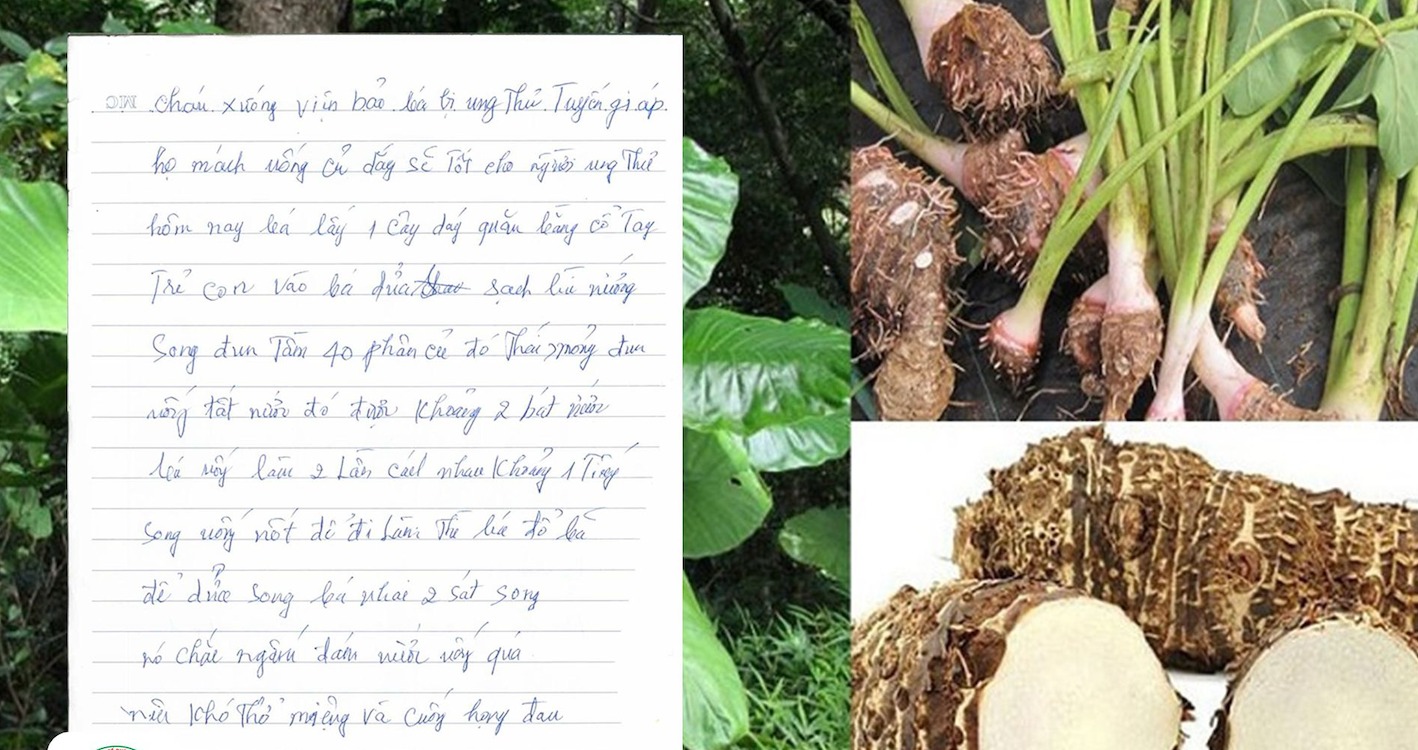 cháu xuống viện bảo bá bị ung thử. Tuyến gi áp.
họ mách uống củ dắg sẽ Tốt cho người ung Thử
hôm nay bá lấy 1 cây dáy quăn bằng cổ Tay
Trẻ con vào bá đửa sạch bù nướng
Song đun Tầm 40 phân củ đó Thái mỏng đun
nước đó được khoảng 2 bát nước
bá uống làm 2 Lần cách nhau khoảng 1 Tiếng
song uống nốt để đi Làm. Thì bá đổ bã
để dửa song bá nhai 2 sát song
nó chắc ngấm dám nước uống quá
nên khó Thở miệng và cuống họng đau